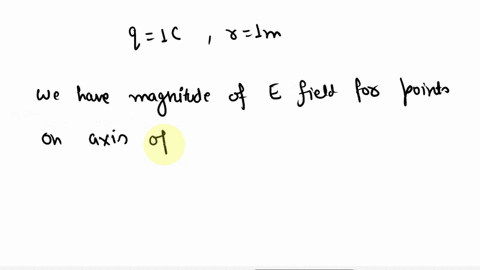 q = 1C , r = 1m
We have magnitude of E field for points
on axis of